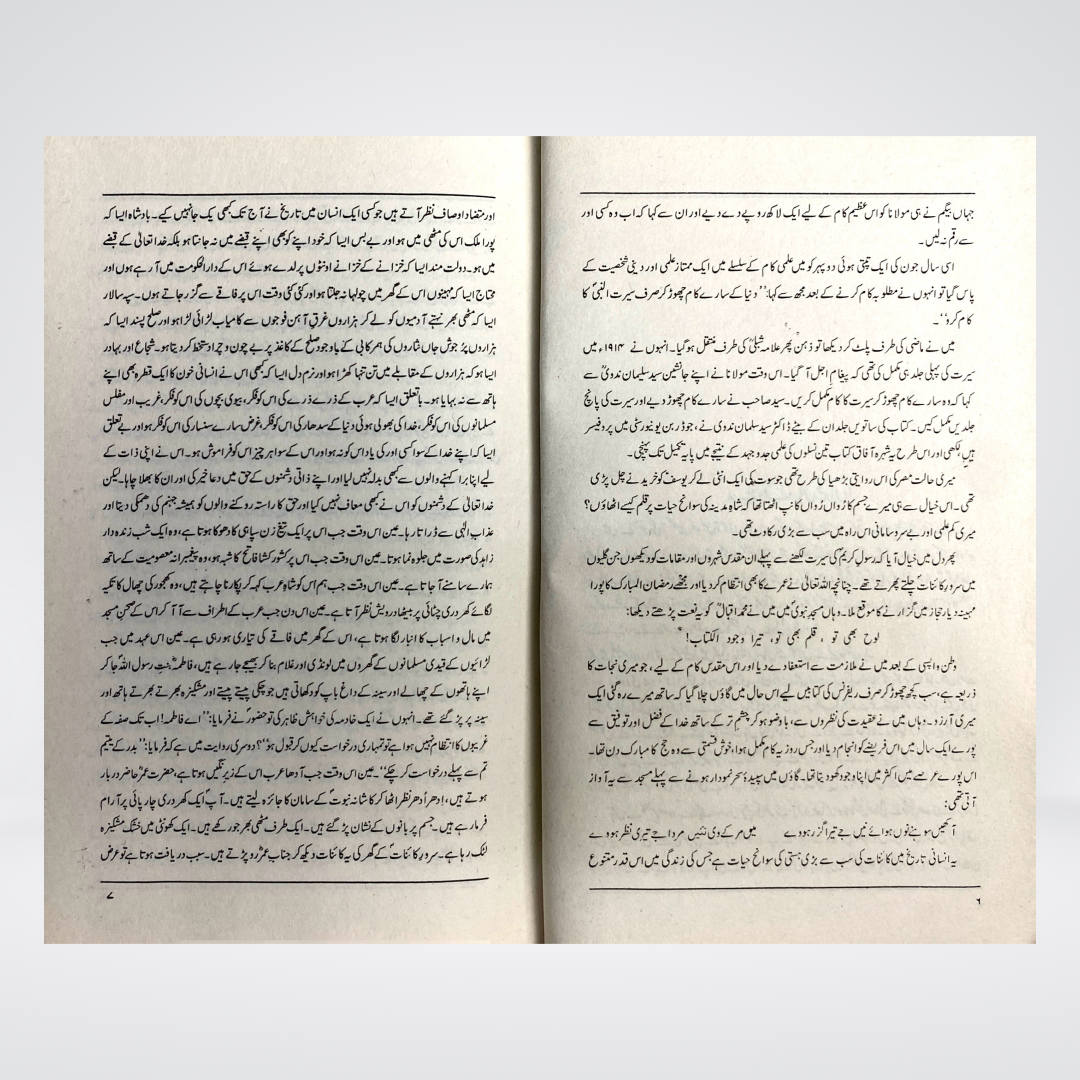 جہاں بیگم نے ہی مولانا کو اس عظیم کام کے لیے ایک لاکھ روپے دے دیے اور ان سے کہا کہ اب وہ کسی اور
سے رقم نہ لیں۔
اسی سال جون کی ایک تپتی ہوئی دوپہر کو میں علمی کام کے سلسلے میں ایک ممتاز علمی اور دینی شخصیت کے
پاس گیا تو انہوں نے مطلوبہ کام کرنے کے بعد مجھ سے کہا: ’’دنیا کے سارے کام چھوڑ کر صرف سیرت النبیؐ کا
کام کرو‘‘۔
میں نے ماضی کی طرف پلٹ کر دیکھا تو ذہن پھر علامہ شبلیؒ کی طرف منتقل ہو گیا۔ انہوں نے ۱۹۱۴ء میں
سیرت کی پہلی جلد ہی مکمل کی تھی کہ پیغامِ اجل آ گیا۔ اس وقت مولانا نے اپنے جانشین سید سلیمان ندویؒ سے
کہا کہ وہ سارے کام چھوڑ کر سیرت کا کام مکمل کریں۔ سید صاحب نے سارے کام چھوڑ دیے اور سیرت کی پانچ
جلدیں مکمل کیں۔ کتاب کی ساتویں جلد ان کے بیٹے ڈاکٹر سید سلمان ندوی نے، جو ڈربن یونیورسٹی میں پروفیسر
ہیں لکھی اور اس طرح یہ شہرہ آفاق کتاب تین نسلوں کی علمی جدوجہد کے نتیجے میں پایہ تکمیل تک پہنچی۔
میری حالت مصر کی اس روایتی بڑھیا کی طرح تھی جو سوت کی ایک انٹی لے کر یوسف کو خریدنے چل پڑی
تھی۔ اس خیال سے ہی میرے جسم کا رُواں رُواں کانپ اٹھتا تھا کہ شاہِ مدینہ کی سوانح حیات پر قلم کیسے اٹھاؤں؟
میری کم علمی اور بے سروسامانی اس راہ میں سب سے بڑی رکاوٹ تھی۔
پھر دل میں خیال آیا کہ رسولِ کریمؐ کی سیرت لکھنے سے پہلے ان مقدس شہروں اور مقامات کو دیکھوں جن گلیوں
میں سرورِ کائناتؐ چلتے پھرتے تھے۔ چنانچہ اللہ تعالیٰ نے عمرے کا بھی انتظام کر دیا اور مجھے رمضان المبارک کا پورا
مہینہ دیارِ حجاز میں گزارنے کا موقع ملا۔ وہاں مسجدِ نبویؐ میں میں نے محمد اقبالؒ کو یہ نعت پڑھتے دیکھا:
لوح بھی تو ، قلم بھی تو، تیرا وجود الکتاب!
وطن واپسی کے بعد میں نے ملازمت سے استعفا دے دیا اور اس مقدس کام کے لیے، جو میری نجات کا
ذریعہ ہے، سب کچھ چھوڑ کر صرف ریفرنس کی کتابیں لیے اس حال میں گاؤں چلا گیا کہ ساتھ میرے رہ گئی ایک
میری آرزو۔ وہاں میں نے عقیدت کی نظروں سے، باوضو ہو کر چشمِ تر کے ساتھ خدا کے فضل اور توفیق سے
پورے ایک سال میں اس فریضے کو انجام دیا اور جس روز یہ کام مکمل ہوا، خوش قسمتی سے وہ حج کا مبارک دن تھا۔
اس پورے عرصے میں اکثر میں اپنا وجود کھو دیتا تھا۔ گاؤں میں سپیدۂ سحر نمودار ہونے سے پہلے مسجد سے یہ آواز
آتی تھی:
آکھیں سوہنے نوں ہوائے نیں جے تیرا گزر ہووے میں مر کے وی نئیں مردا جے تیری نظر ہووے
یہ انسانی تاریخ میں کائنات کی سب سے بڑی ہستی کی سوانح حیات ہے جس کی زندگی میں اس قدر متنوع
۶
اور متضاد اوصاف نظر آتے ہیں جو کسی ایک انسان میں تاریخ نے آج تک کبھی یک جا نہیں کیے۔ بادشاہ ایسا کہ
پورا ملک اس کی مٹھی میں ہو اور بے بس ایسا کہ خود اپنے کو بھی اپنے قبضے میں نہ جانتا ہو بلکہ خدا تعالیٰ کے قبضے
میں ہو۔ دولت مند ایسا کہ خزانے کے خزانے اونٹوں پر لدے ہوئے اس کے دارالحکومت میں آ رہے ہوں اور
محتاج ایسا کہ مہینوں اس کے گھر میں چولہا نہ جلتا ہو اور کئی کئی وقت اس پر فاقے سے گزر جاتے ہوں۔ سپہ سالار
ایسا کہ مٹھی بھر نہتے آدمیوں کو لے کر ہزاروں غرقِ آہن فوجوں سے کامیاب لڑائی لڑا ہو اور صلح پسند ایسا کہ
ہزاروں پُرجوش جاں نثاروں کی ہمرکابی کے باوجود صلح کے کاغذ پر بے چون و چرا دستخط کر دیتا ہو۔ شجاع اور بہادر
ایسا ہو کہ ہزاروں کے مقابلے میں تن تنہا کھڑا ہو اور نرم دل ایسا کہ کبھی اس نے انسانی خون کا ایک قطرہ بھی اپنے
ہاتھ سے نہ بہایا ہو۔ باتعلق ایسا کہ عرب کے ذرے ذرے کی اس کو فکر، بیوی بچوں کی اس کو فکر، غریب اور مفلس
مسلمانوں کی اس کو فکر، خدا کی بھولی ہوئی دنیا کے سدھار کی اس کو فکر، غرض سارے سنسار کی اس کو فکر ہو اور بے تعلق
ایسا کہ اپنے خدا کے سوا کسی اور کی یاد اس کو نہ ہو اور اس کے سوا ہر چیز اس کو فراموش ہو۔ اس نے اپنی ذات کے
لیے اپنا برا کہنے والوں سے کبھی بدلہ نہیں لیا اور اپنے ذاتی دشمنوں کے حق میں دعا خیر کی اور ان کا بھلا چاہا۔ لیکن
خدا تعالیٰ کے دشمنوں کو اس نے کبھی معاف نہیں کیا اور حق کا راستہ روکنے والوں کو ہمیشہ جہنم کی دھمکی دیتا اور
عذاب الٰہی سے ڈراتا رہا۔ عین اس وقت جب اس پر ایک تیغ زن سپاہی کا دھوکا ہوتا ہے، وہ ایک شب زندہ دار
زاہد کی صورت میں جلوہ نما ہوتا۔ عین اس وقت جب اس پر کشور کشا فاتح کا شبہ ہو، وہ پیغمبرانہ معصومیت کے ساتھ
ہمارے سامنے آ جاتا ہے۔ عین اس وقت جب ہم اس کو شاہِ عرب کہہ کر پکارنا چاہتے ہیں، وہ کھجور کی چھال کا تکیہ
لگائے کھردری چٹائی پر بیٹھا درویش نظر آتا ہے۔ عین اس دن جب عرب کے اطراف سے آ آ کر اس کے صحنِ مسجد
میں مال و اسباب کا انبار لگا ہوتا ہے، اس کے گھر میں فاقے کی تیاری ہو رہی ہے۔ عین اس عہد میں جب
لڑائیوں کے قیدی مسلمانوں کے گھروں میں لونڈی اور غلام بنا کر بھیجے جا رہے ہیں، فاطمہؓ بنت رسول اللہؐ جا کر
اپنے ہاتھوں کے چھالے اور سینہ کے داغ باپ کو دکھاتی ہیں جو چکی پیستے پیستے اور مشکیزہ بھرتے بھرتے ہاتھ اور
سینہ پر پڑ گئے تھے۔ انہوں نے ایک خادمہ کی خواہش ظاہر کی تو حضورؐ نے فرمایا: ’’اے فاطمہ! اب تک صفہ کے
غریبوں کا انتظام نہیں ہوا ہے تو تمہاری درخواست کیوں کر قبول ہو‘‘؟ دوسری روایت میں ہے کہ فرمایا: ’’بدر کے یتیم
تم سے پہلے درخواست کر چکے‘‘۔ عین اس وقت جب آدھا عرب اس کے زیرِ نگیں ہوتا ہے، حضرت عمرؓ حاضرِ دربار
ہوتے ہیں، اِدھر اُدھر نظر اٹھا کر کاشانہ نبوتؐ کے سامان کا جائزہ لیتے ہیں۔ آپؐ ایک کھردری چارپائی پر آرام
فرما رہے ہیں۔ جسم پر بانوں کے نشان پڑ گئے ہیں۔ ایک طرف مٹھی بھر جو رکھے ہیں۔ ایک کھونٹی میں خشک مشکیزہ
لٹک رہا ہے۔ سرورِ کائناتؐ کے گھر کی یہ کائنات دیکھ کر جناب عمرؓ رو پڑتے ہیں۔ سبب دریافت ہوتا ہے تو عرض
۷